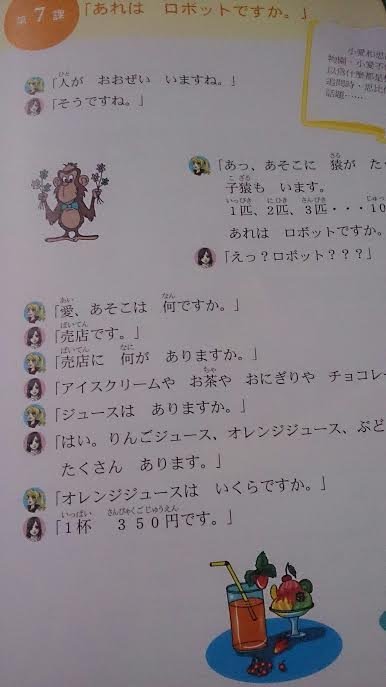 第7課 「あれは ロボットですか。」
小愛和思
物園。小愛不
以為什麼都是
追問時,思比
話題……
「人が おおぜい いますね。」
「そうですね。」
「あっ、あそこに 猿が た
子猿も います。
1匹、2匹、3匹・・・10
あれは ロボットですか。
「えっ?ロボット???」
「愛、あそこは 何ですか。」
「売店です。」
「売店に 何が ありますか。」
「アイスクリームや お茶や おにぎりや チョコレ
「ジュースは ありますか。」
「はい。りんごジュース、オレンジジュース、ぶど
たくさん あります。」
「オレンジジュースは いくらですか。」
「1杯 350円です。」